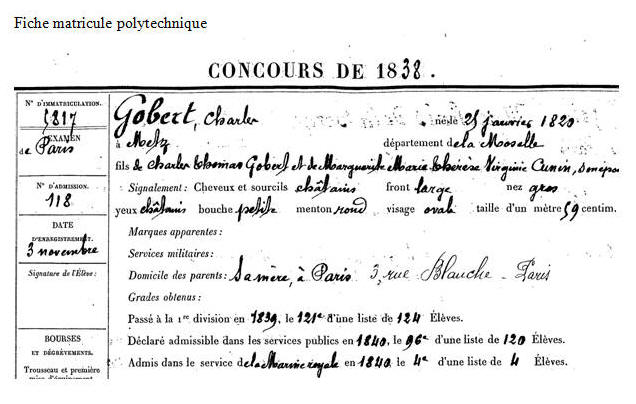 Fiche matricule polytechnique
CONCOURS DE 1838.
N° D'IMMATRICULATION.
5817
EXAMEN
de Paris
N° D'ADMISSION.
118
DATE
D'ENREGISTREMENT.
3 novembre
Signature de l'Élève:
BOURSES
ET DÉGRÈVEMENTS.
Trousseau et première
mise d'équipement
Gobert, Charles né le 25 janvier 1820
à Metz département de la Moselle
fils de Charles Thomas Gobert et de Marguerite Marie Thérèse Virginie Cunin, son épouse
Signalement: Cheveux et sourcils châtains front large nez gros
yeux châtains bouche petite menton rond visage ovale taille d'un mètre 59 centim.
Marques apparentes:
Services militaires:
Domicile des parents: Sa mère, à Paris 3, rue Blanche - Paris
Grades obtenus:
Passé à la 1re division en 1839, le 121e d'une liste de 124 Élèves.
Déclaré admissible dans les services publics en 1840, le 96e d'une liste de 120 Élèves.
Admis dans le service de la Marine royale en 1840, le 4e d'une liste de 4 Élèves.